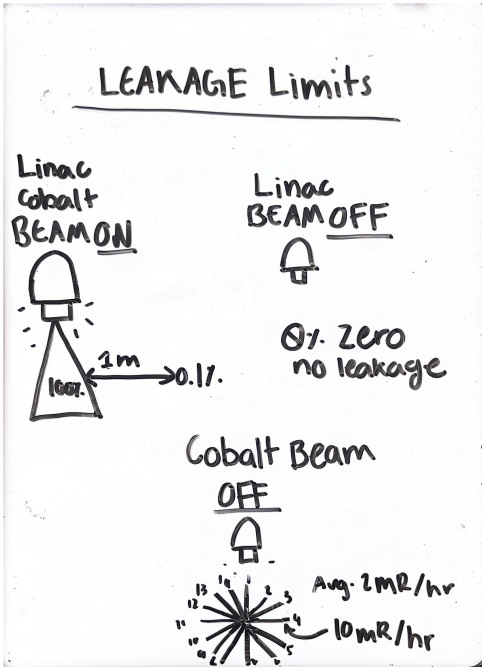 LEAKAGE Limits
Linac
Cobalt
BEAM ON
1m
100%
0.1%
Linac
BEAM OFF
0% Zero
no leakage
Cobalt Beam
OFF
Avg. 2mR/hr
10mR/hr
1
2
3
4
5
10
11
12
13
14